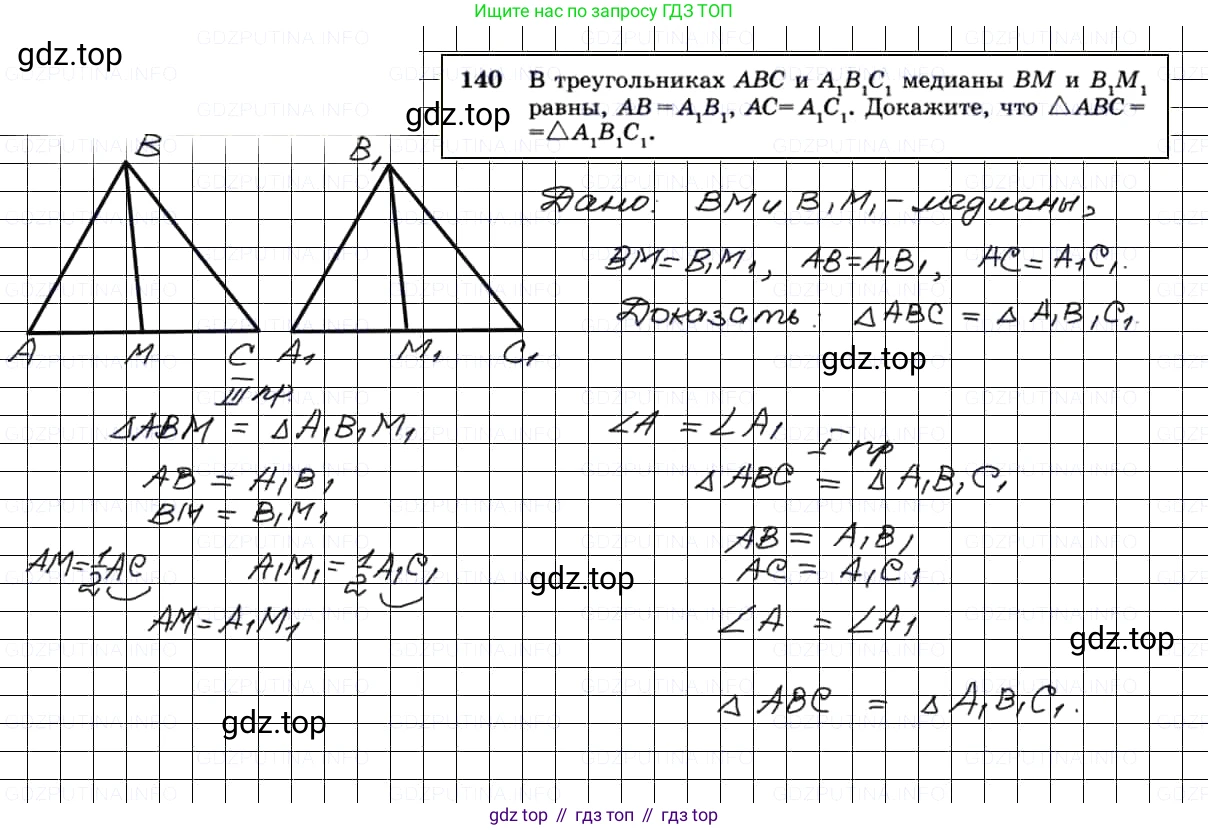 Ищите нас по запросу ГДЗ ТОП
gdz.top
140 В треугольниках ABC и A₁B₁C₁ медианы BM и B₁M₁
равны, AB = A₁B₁, AC = A₁C₁. Докажите, что △ABC =
= △A₁B₁C₁.
gdz.top
B
B₁
A M C A₁ M₁ C₁
Дано: BM и B₁M₁ - медианы,
BM = B₁M₁, AB = A₁B₁, AC = A₁C₁.
Доказать: △ABC = △A₁B₁C₁.
gdz.top
III пр.
△ABM = △A₁B₁M₁
AB = A₁B₁
BM = B₁M₁
AM = 1/2 AC A₁M₁ = 1/2 A₁C₁
AM = A₁M₁
∠A = ∠A₁
I пр
△ABC = △A₁B₁C₁
AB = A₁B₁
AC = A₁C₁
∠A = ∠A₁
△ABC = △A₁B₁C₁.
gdz.top
gdz.top
gdz.top
GDZPUTINA.INFO
gdz top // гдз топ // гдз top